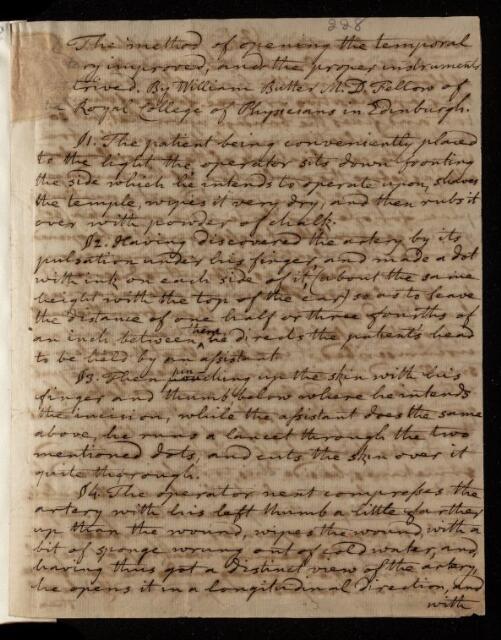 228
The method of opening the temporal
ry improved, and the proper instruments
trived. By William Butter M. D. Fellow of
Royal College of Physicians in Edinburgh.
§1. The patient being conveniently placed
to the light, the operator sits down fronting
the side which he intends to operate upon, shaves
the temple, wipes it very dry, and then rubs it
over with powder of chalk.
§2. Having discovered the artery by its
pulsation under his finger, and made a dot
with ink on each side of it, (about the same
height with the top of the ear) so as to leave
the distance of one half or three fourths of
an inch between them, he directs the patient's head
to be held by an assistant
§3. Then pinching up the skin with his
finger and thumb below where he intends
the incision, while the assistant does the same
above, he runs a lancet through the two
mentioned dots, and cuts the skin over it
quite thorough.
§4. The operator next compresses the
artery with his left thumb a little farther
up than the wound, wipes the wound with a
bit of sponge wrung out of cold water, and
having thus got a distinct view of the artery,
he opens it in a longitudinal direction, and
with